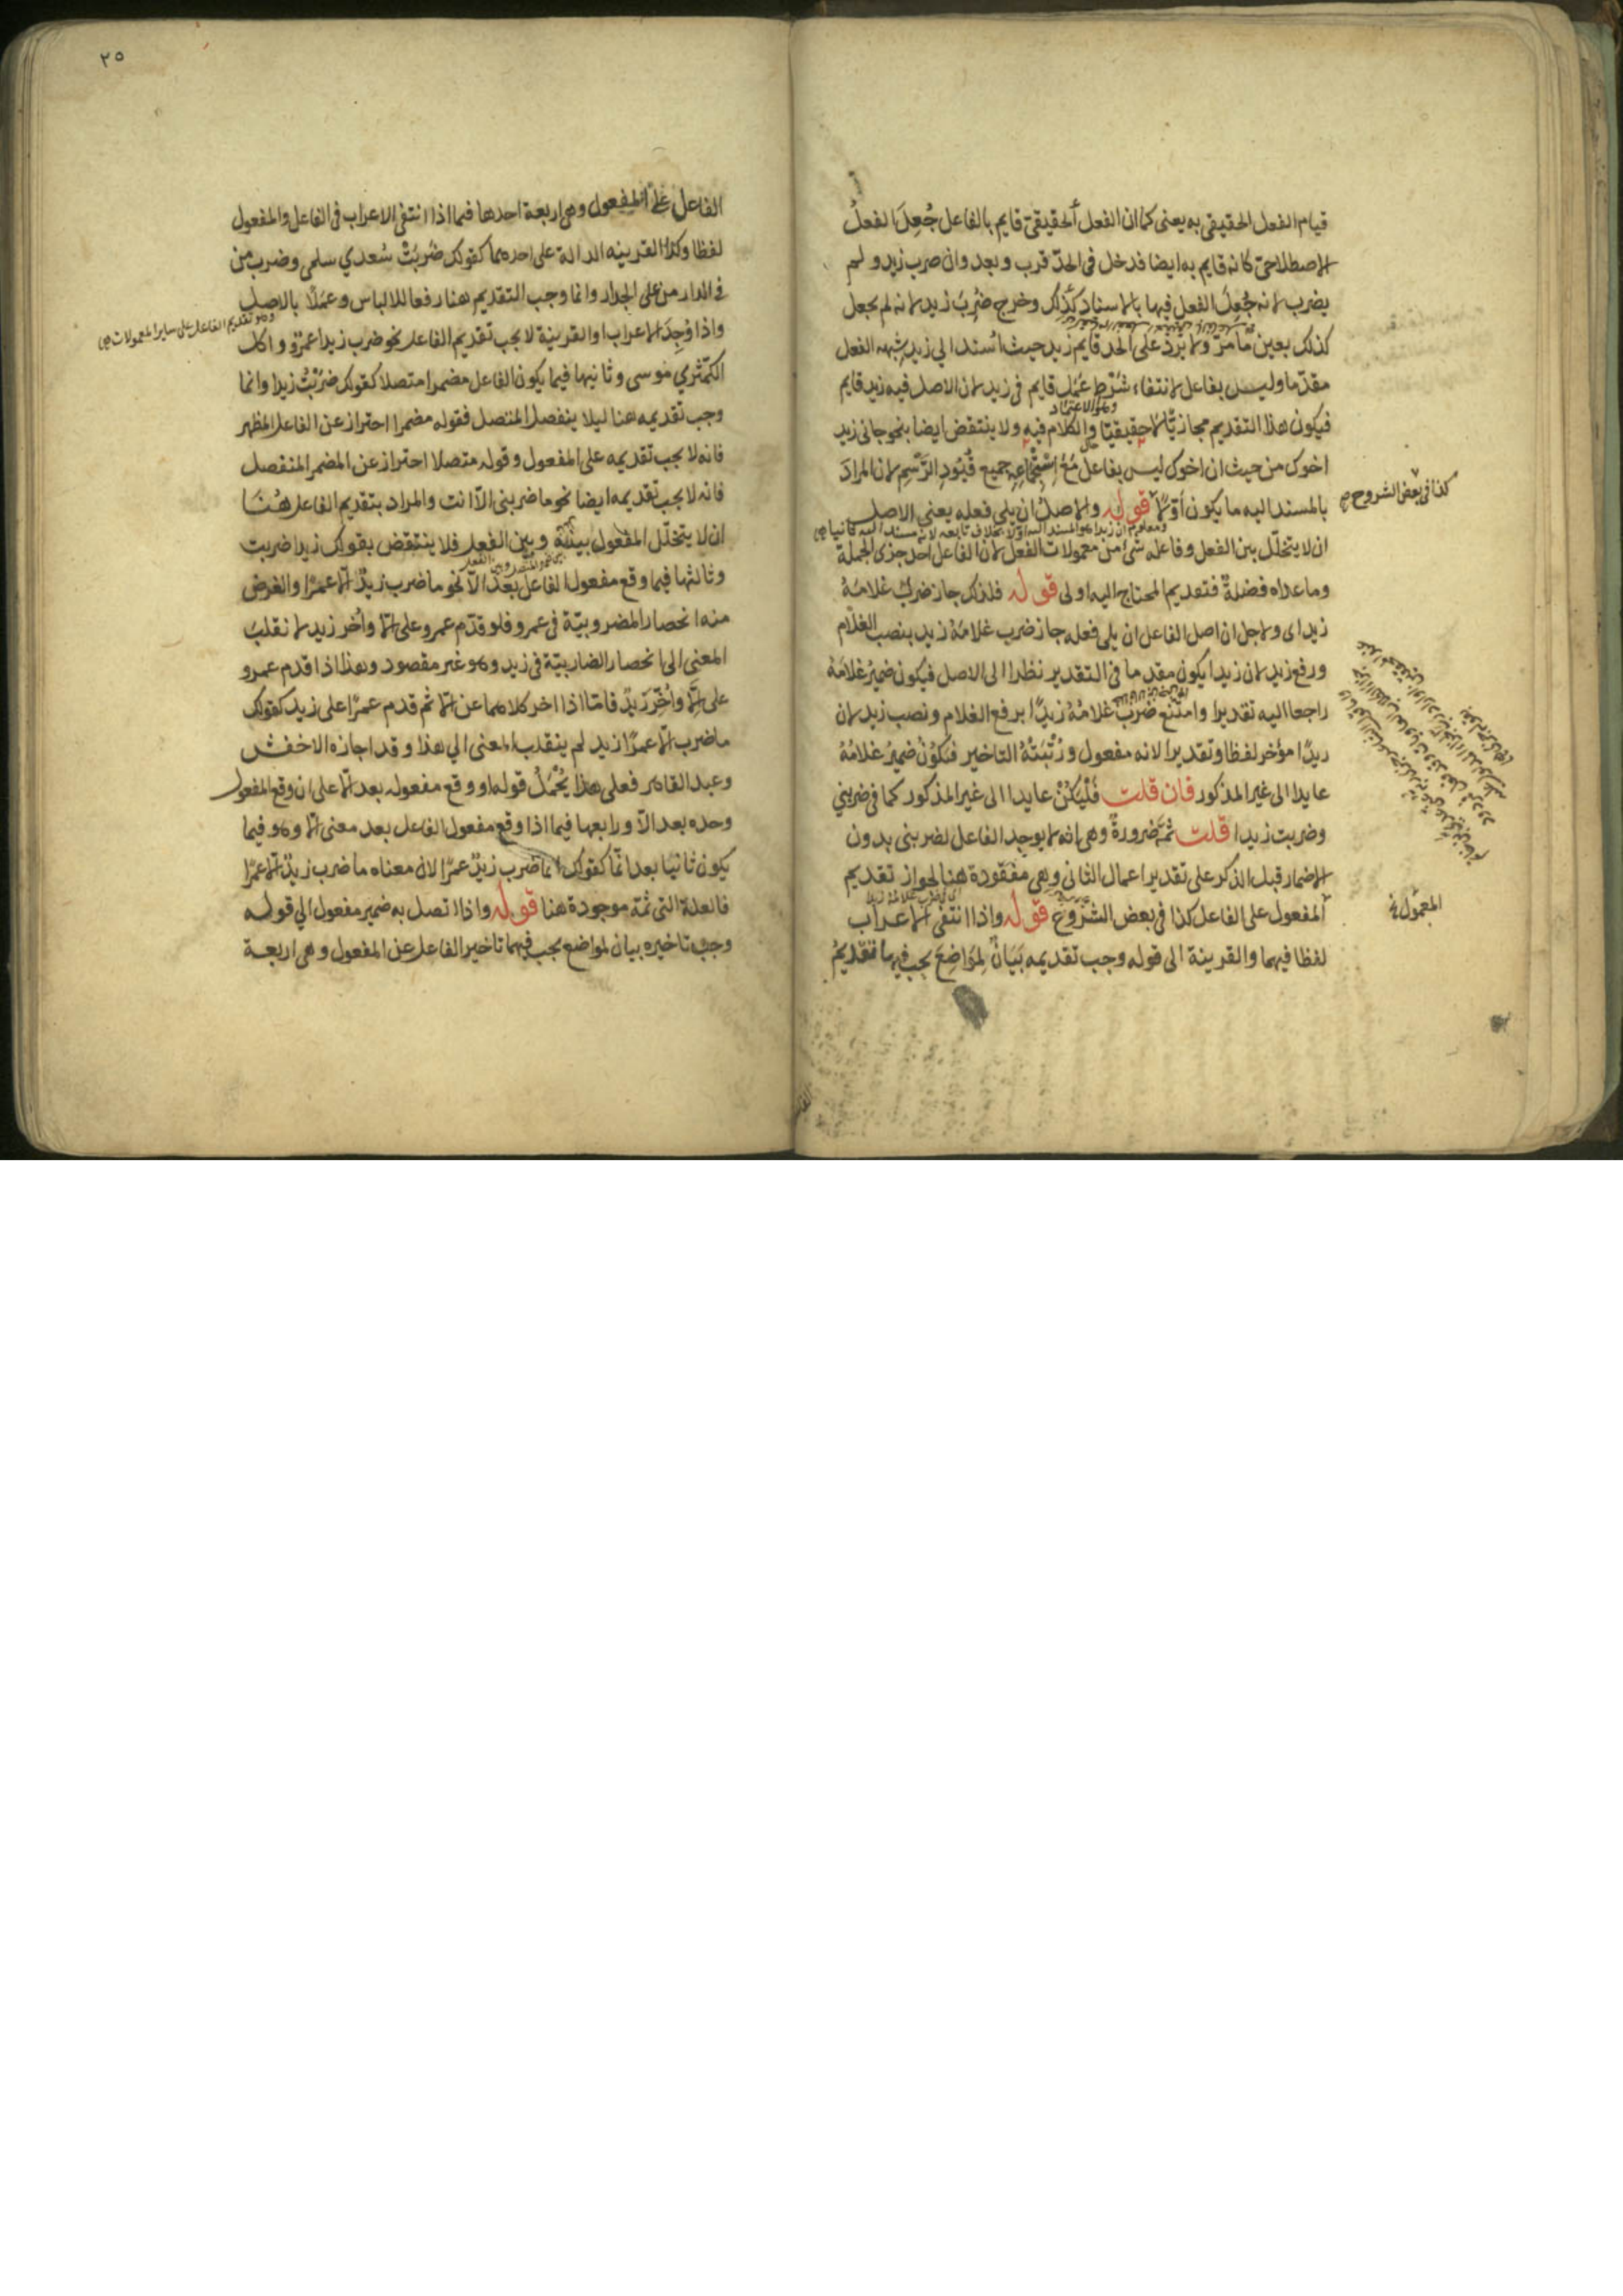 قيام الفعل الحقيقى به يعنى كما ان الفعل الحقيقىّ قايم بالفاعل جُعِلَ الفعلُ
الاصطلاحىّ كانه قايم به ايضا فدخل فى الحدّ قرب وبعد وان ضرب زيد ولم
يضرب لانه جُعِلَ الفعل فيها بالاسناد كذلك وخرج ضُرِبَ زيد لانه لم يجعل
كذلك بعين ما مرّ ولا يَرِدُ على الحد قايم زيد حيث اُسند الي زيد شبهه الفعل
مقدّما وليس بفاعل لانتفاء شَرْطِ عَمَلِ قايم فى زيد لان الاصل فيه زيد قايم
وهو الاعتماد
فيكون هذا التقديم مجازيًّا لا حقيقيّا والكلام فيه ولا ينتقض ايضا بنحو جانى زيد
اخوك من حيث ان اخوك ليس بفاعل مَعُ اسْتِجْمَاعِهِ جميع قُيُودِ الرَّسْمِ لان المرادَ
كذا فى بعض الشروح صح
بالمسند اليه ما يكون أوّلًا قوله والاصلُ ان يلي فعله يعني الاصل
ومعلوم ان زيدا هو المسند اليه اولا بخلاف تابعه لانه مسند اليه ثانيا صح
ان لا يتخلّل بين الفعل وفاعله شئ من معمولات الفعل لان الفاعل احد جزئ الجملة
وما عداه فضلةٌ فتقديم المحتاج اليه اولى قوله فلذلك جاز ضرب غلامَهُ
زيد اى ولاجل ان اصل الفاعل ان يلى فعله جاز ضرب غلامَهُ زيد بنصب الغلام
ورفع زيد لان زيدا يكون مقدما فى التقدير نظرا الى الاصل فيكون ضميرُ غلامَهُ
راجعا اليه تقديرا وامتنع ضَرَبَ غلامُهُ زيدًا برفع الغلام ونصب زيد لان
زيدًا مؤخر لفظا وتقديرا لانه مفعول ورُتْبَتُهُ التاخير فيَكُوُنُ ضميرُ غلامُهُ
عايدا الى غير المذكور فان قلت فَلْيَكُنْ عايدا الى غير المذكور كما فى ضربني
وضربت زيدا قلت ثمّ ضرورةٌ وهى انه لا يوجد الفاعل لضربنى بدون
الاضمار قبل الذكر على تقدير اعمال الثانى وهي مفقودة هنا لجواز تقديم
المعمول خ
المفعول على الفاعل كذا فى بعض الشروح قوله واذا انتفى الاعراب
لفظا فيهما والقرينة الى قوله وجب تقديمه بَيَانٌ لِمَوَاضِعَ يجب فيها تقديمُ
٢٥
الفاعل على المفعول وهى اربعة احدها فيما اذا انتفى الاعراب فى الفاعل والمفعول
لفظا وكذا القرينه الدالة على احدهما كقولك ضَرَبَتْ سُعدي سلمى وضرب من
فى الدار من على الجدار وانما وجب التقديم هنا رفعا للالباس وعَمَلًا بالاصل
وهو تقديم الفاعل على ساير المعمولات صح
واذا وُجِدَ الاعراب او القرينة لا يجب تقديم الفاعل نحو ضرب زيدا عمرو واكل
الكمّثري موسى وثانيها فيما يكون الفاعل مضمرا متصلا كقولك ضَرَبْتُ زيدا وانما
وجب تقديمه هنا ليلا ينفصل المتصل فقوله مضمرا احتراز عن الفاعل المظهر
فانه لا يجب تقديمه على المفعول وقوله متصلا احتراز عن المضمر المنفصل
فانه لا يجب تقديمه ايضا نحو ما ضربنى الّا انت والمراد بتقديم الفاعل هُنَا
ان لا يتخلّل المفعول بينَهُ وبين الفعل فلا ينتقض بقولك زيدا ضربت
وثالثها فيما وقع مفعول الفاعل بَعْدَ الّا نحو ما ضرب زيدٌ الّا عمرًا والغرض
منه انحصار المضروبيّة فى عمرو فلو قدّم عمرو على الّا واُخر زيد لانقلب
المعنى الى انحصار الضاربيّة فى زيد وهو غير مقصود وهذا اذا قدم عمرو
على الّا واُخِّرَ زيدٌ فامّا اذا اخر كلاهما عن الّا ثم قدم عمرًا على زيد كقولك
ما ضرب الّا عمرًا زيد لم ينقلب المعنى الي هذا وقد اجازه الاخفش
وعبد القاهر فعلى هذا يُحْمَلُ قوله او وقع مفعوله بعد الّا على ان وقع المفعول
وحده بعد الّا ورابعها فيما اذا وقع مفعول الفاعل بعد معنى الّا وهو فيما
يكون ثانيًا بعد انّما كقولك انما ضرب زيدٌ عمرًا لان معناه ما ضرب زيدٌ الّا عمرًا
فالعلة التى ثمة موجودة هنا قوله واذا اتصل به ضمير مفعول الي قوله
وجب تاخيره بيان لمواضع يجب فيها تاخير الفاعل عن المفعول وهى اربعة